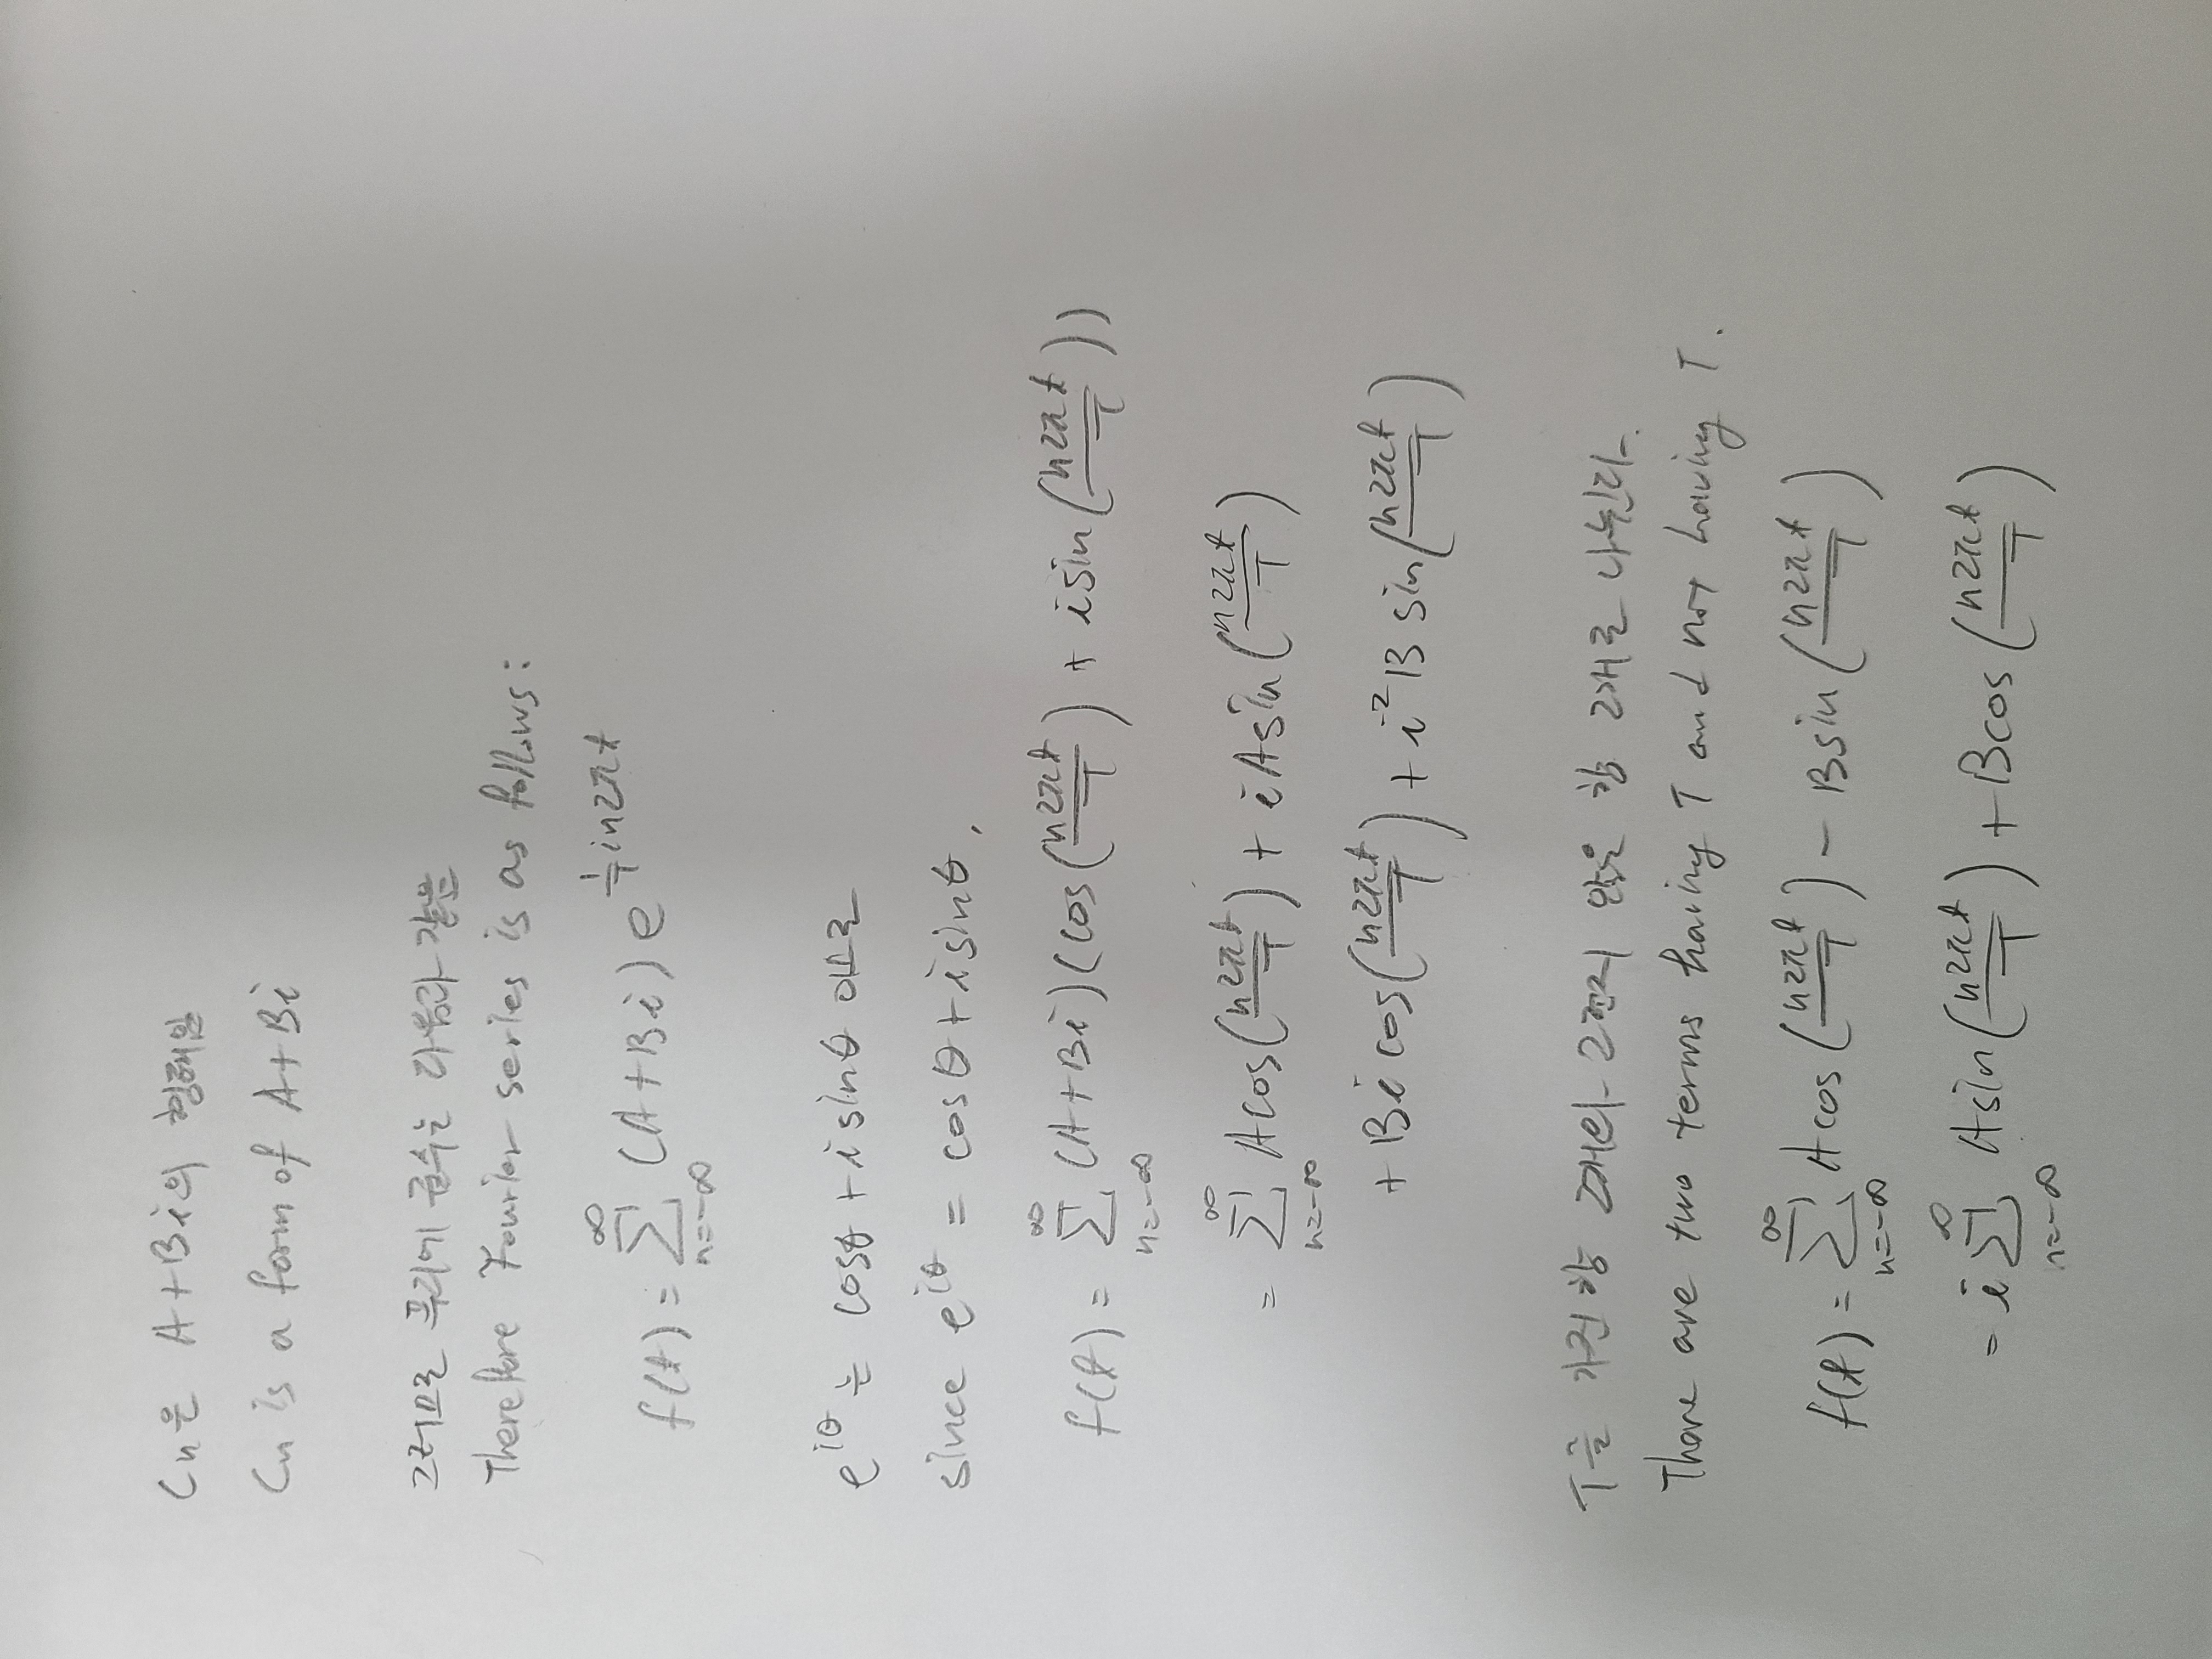 Cn은 A+Bi의 형태임
Cn is a form of A+Bi
그러므로 푸리에 급수는 다음과 같음
Therefore Fourier series is as follows:
f(t) = ∑_{n=-∞}^{∞} (A+Bi) e^{\frac{1}{T} in2πt}
e^{iθ}는 cosθ + i sinθ 이므로
since e^{iθ} = cosθ + i sinθ,
f(t) = ∑_{n=-∞}^{∞} (A+Bi)(cos(\frac{n2πt}{T}) + i sin(\frac{n2πt}{T}))
= ∑_{n=-∞}^{∞} A cos(\frac{n2πt}{T}) + i A sin(\frac{n2πt}{T})
+ Bi cos(\frac{n2πt}{T}) + i² B sin(\frac{n2πt}{T})
T를 가진 항 2개와 그렇지 않은 항 2개로 나뉜다.
There are two terms having T and not having T.
f(t) = ∑_{n=-∞}^{∞} A cos(\frac{n2πt}{T}) - B sin(\frac{n2πt}{T})
= i ∑_{n=-∞}^{∞} A sin(\frac{n2πt}{T}) + B cos(\frac{n2πt}{T})